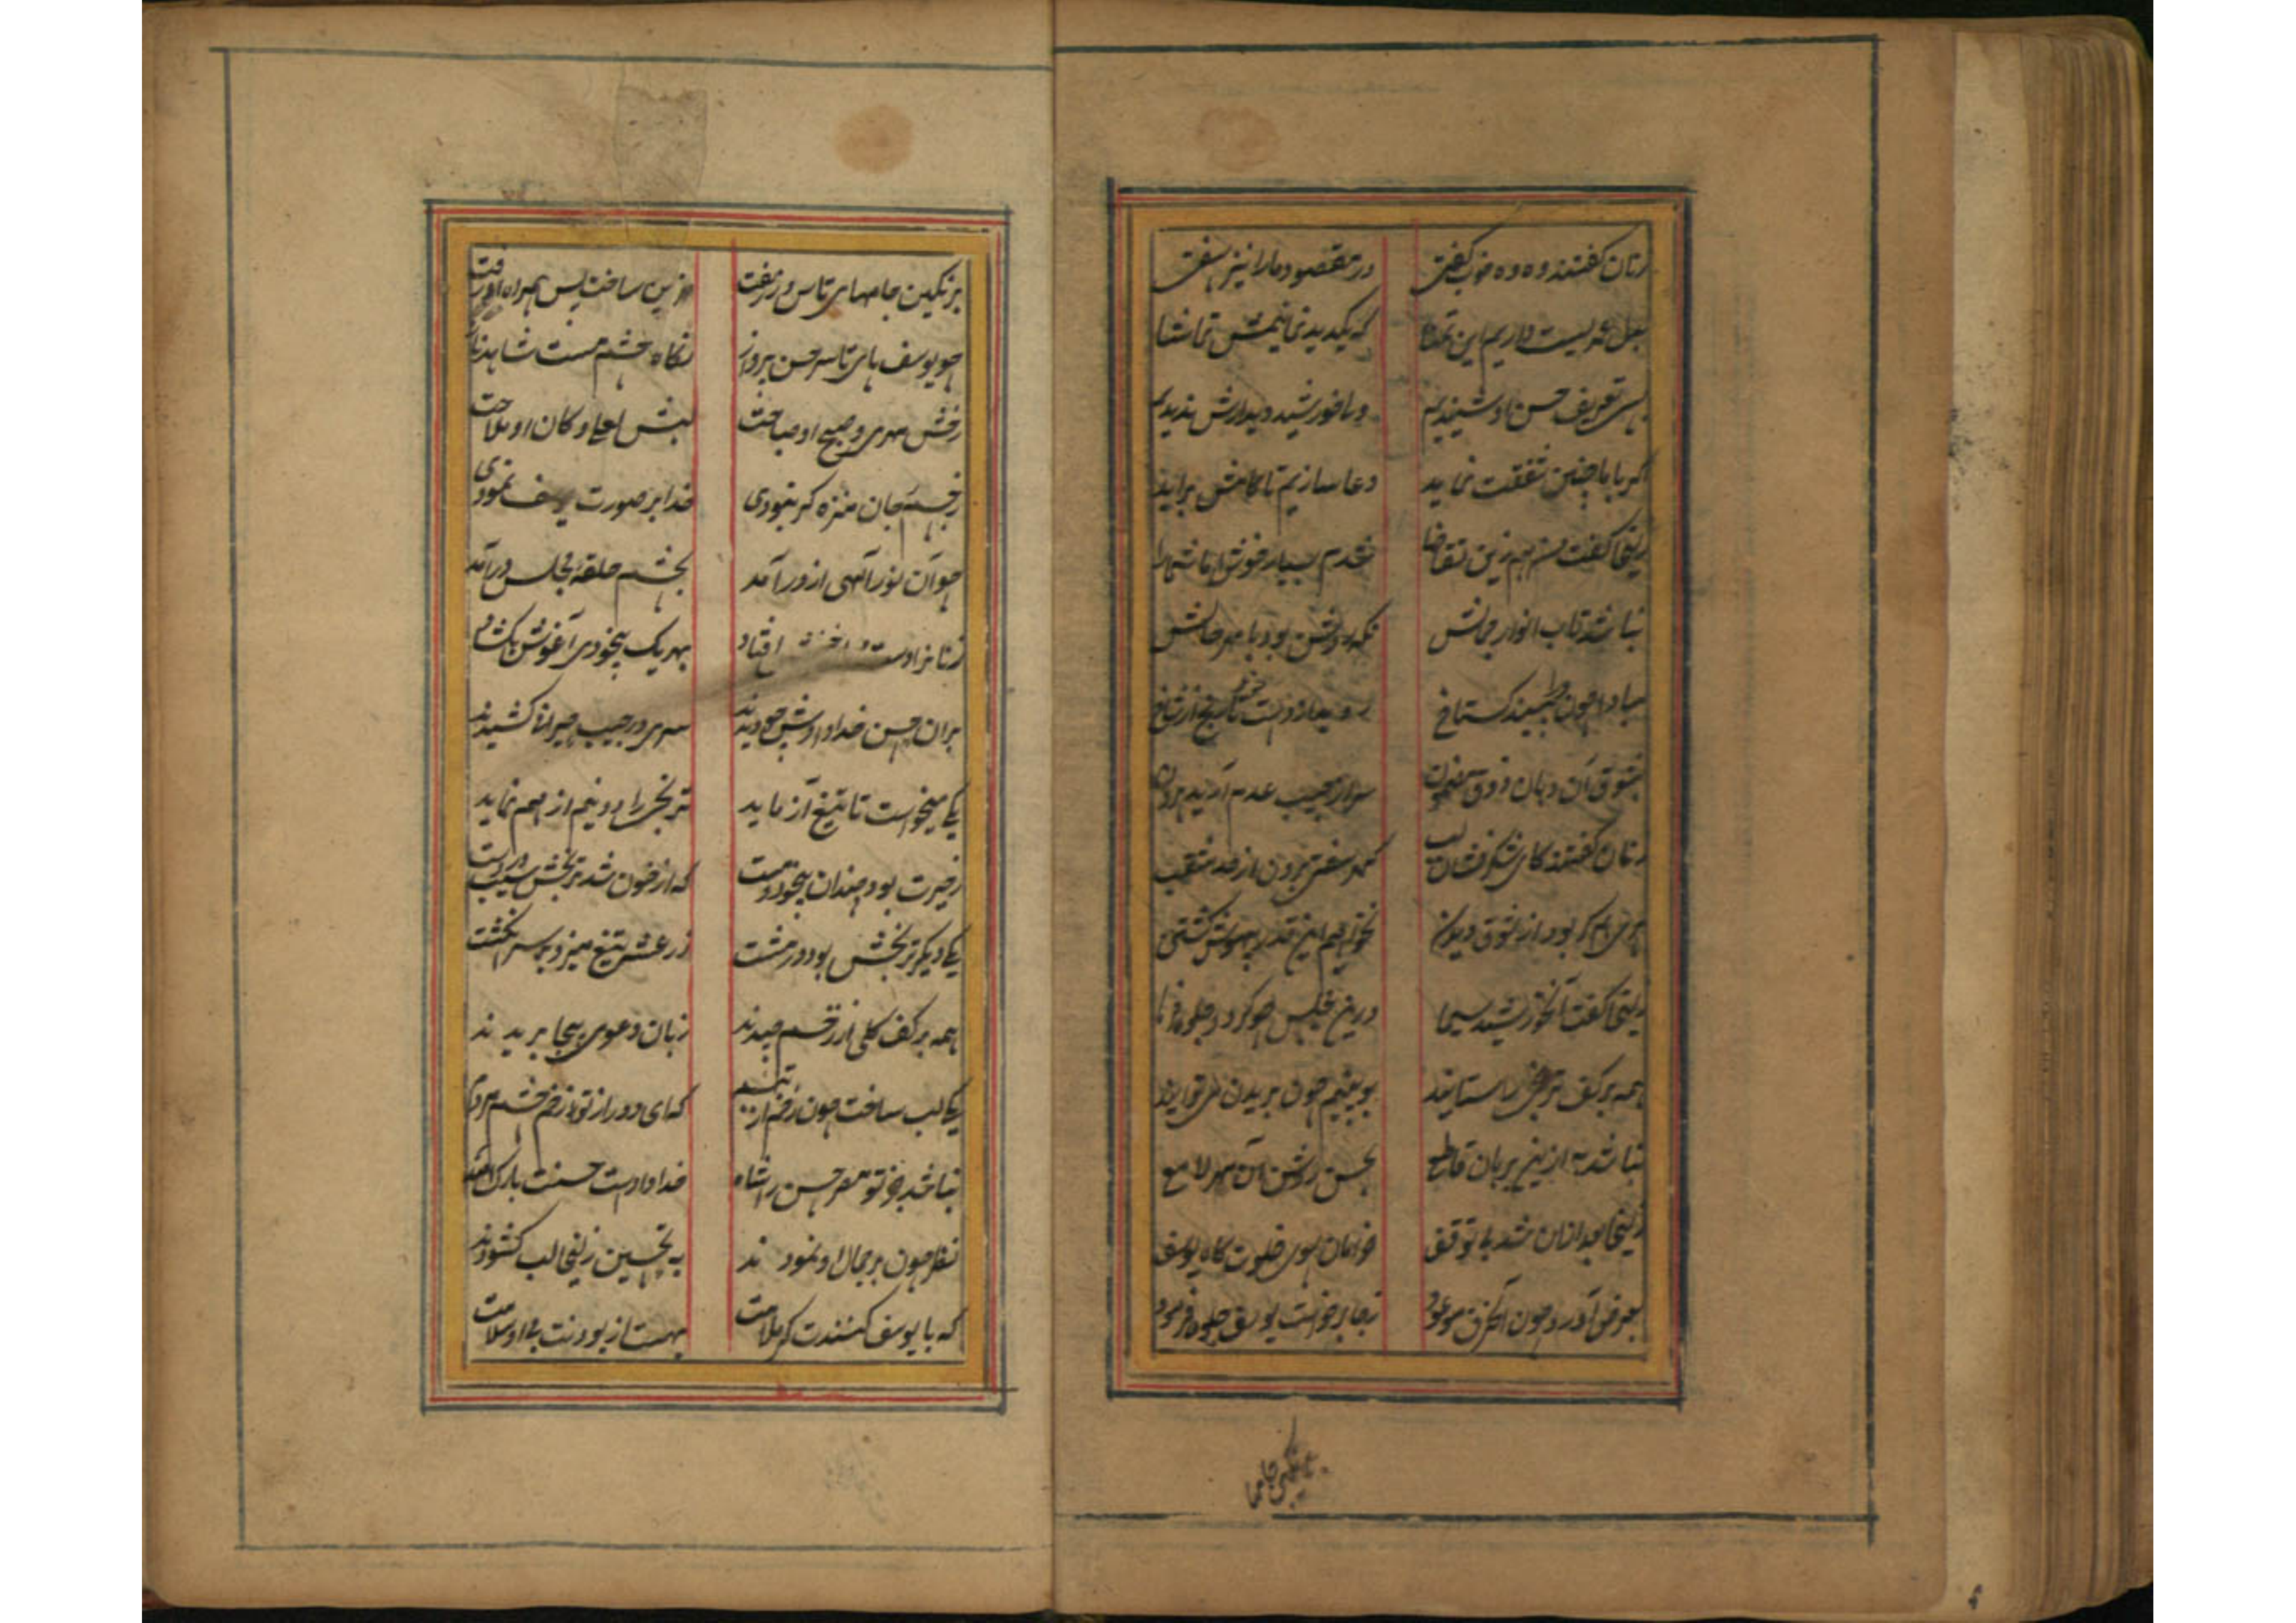 زنان گفتند وه وه خوب گفتی در مقصود ما را نیز سفتی
بدل عمریست داریم این تمنا که یکدید نمائیمش تماشا
بسی تعریف حسن او شنیدیم ولی خورشید دیدارش ندیدیم
اگر با ما چنین شفقت نماید دعا سازیم تا کامش براید
زلیخا گفت من هم زین تقاضا شدم بسیار خوش اما شما را
نباشد تاب انوار جمالش نگه
مبادا چون ببیند گستاخ
بشوق آن دهان ذوق مضمون سر از جیب عدم آرید بیرون
زنان گفتند کای شکرفشان لب گهر سفتی برون از حد
نخواهیم این قدر بیهوش گشتن
زلیخا گفت آن خورشید سیما درین مجلس چو گردد جلوه فرما
همه بر کف ترنجی را ستانید ببینیم چون بریدن می توانید
نباشد به ازین برهان قاطع بحسن روشن آن مهر لامع
زلیخا بعد ازان شد بی توقف خرامان سوی خلوت گاه یوسف
بعرض آورد چون آن حرف موعود ز جا برخاست یوسف جلوه فرمود
برنگین جامها
برنگین جامهای تاس و زربفت مزین ساخت پس همراه او رفت
چو یوسف پای تا سر حسن پرواز نگاه چشم مست شاهد ناز
رخش مهری و صبح او صباحت لبش لعلی و کان او ملاحت
ز جسم و جان منزه گر نبودی خدا بر صورت یوسف نمودی
چو آن نور آلهی از در آمد بچشم حلقهٔ مجلس درآمد
زنانرا دست و افتاد بهر یک بیخودی آغوش بگشاد
بران حسن خدادادش چو دیدند سری در جیب حیرانی کشیدند
یکی میخواست تا تیغ آزماید ترنجی را دو نیم از هم نماید
ز حیرت بود چندان بیخود و مست که از خون شد ترنجش سیب در دست
یکی دیگر ترنجش بود در مشت ز رعشه تیغ میزد بر سر انگشت
همه بر کف گلی از زخم چیدند زبان دعوی بیجا بریدند
یکی لب ساخت چون زخم از تبسم که ای دور از تو زخم چشم مردم
نباشد جز تو مصر حسن را شاه خدا دادست حسنت بارک الله
نظر چون بر جمال او نمودند به تحسین زلیخا لب گشودند
که با یوسف کنندت گر ملامت بهست از بودنت بی او سلامت